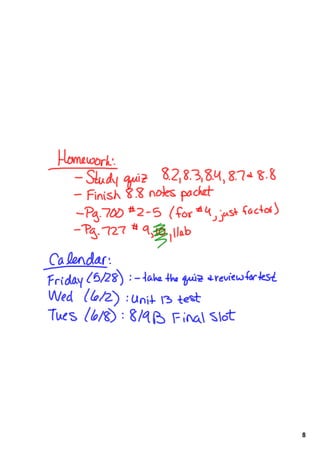 Homework:
- Study quiz 8.2, 8.3, 8.4, 8.7 & 8.8
- Finish 8.8 notes packet
- Pg. 700 # 2-5 (for #4, just factor)
- Pg. 727 # 9, 11ab
Calendar:
Friday (5/28) : - take the quiz & review for test
Wed (6/2) : Unit 13 test
Tues (6/8) : 8/9B Final Slot
8